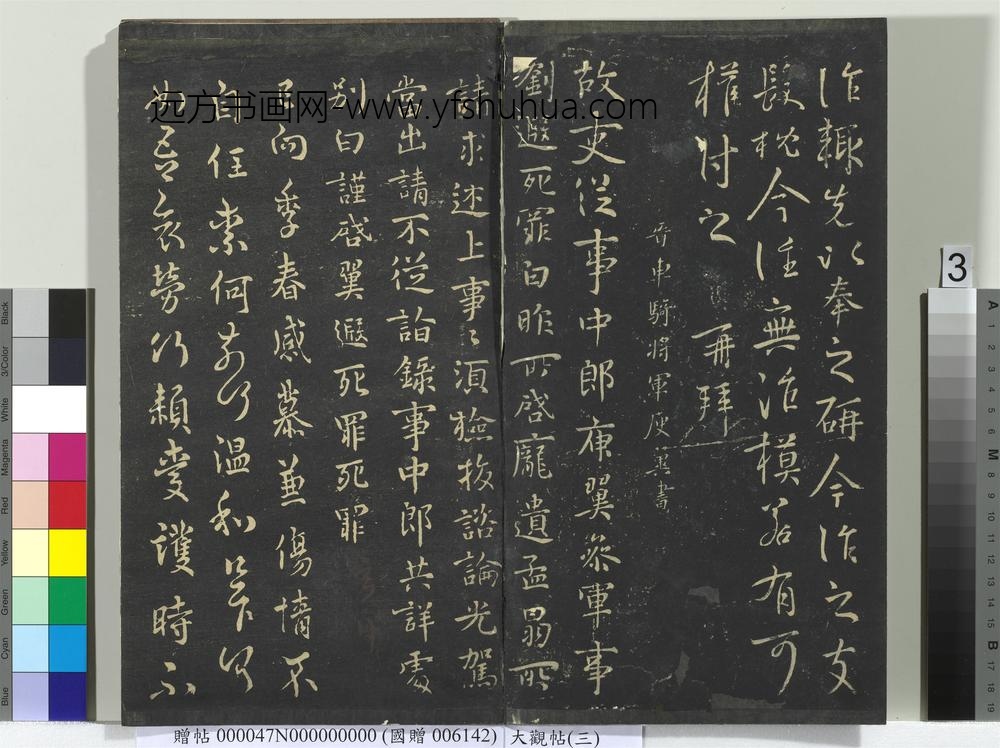 治輙先以奉之研今治之支
髮枕今往無治模若有可
權付之 再拜
晉車騎將軍庾翼書
故吏從事中郎庾翼參軍事
劉遐死罪白昨所啓龐遺孟昌所
請求述上事〻須檢校諮論光駕
當出請不從詣錄事中郎共詳處
別白謹啓翼遐死罪死罪
季春感慕兼傷情不
自任柰何奈何溫和
哀勞行類愛護時不
远方书画网-www.yfshuhua.com
3
贈帖 000047N000000000 (國贈 006142) 大觀帖(三)
Black
3/Color
White
Magenta
Red
Yellow
Green
Cyan
Blue
A 1 2 3 4 5 6 M 8 9 10 11 12 13 14 15 B 17 18 19